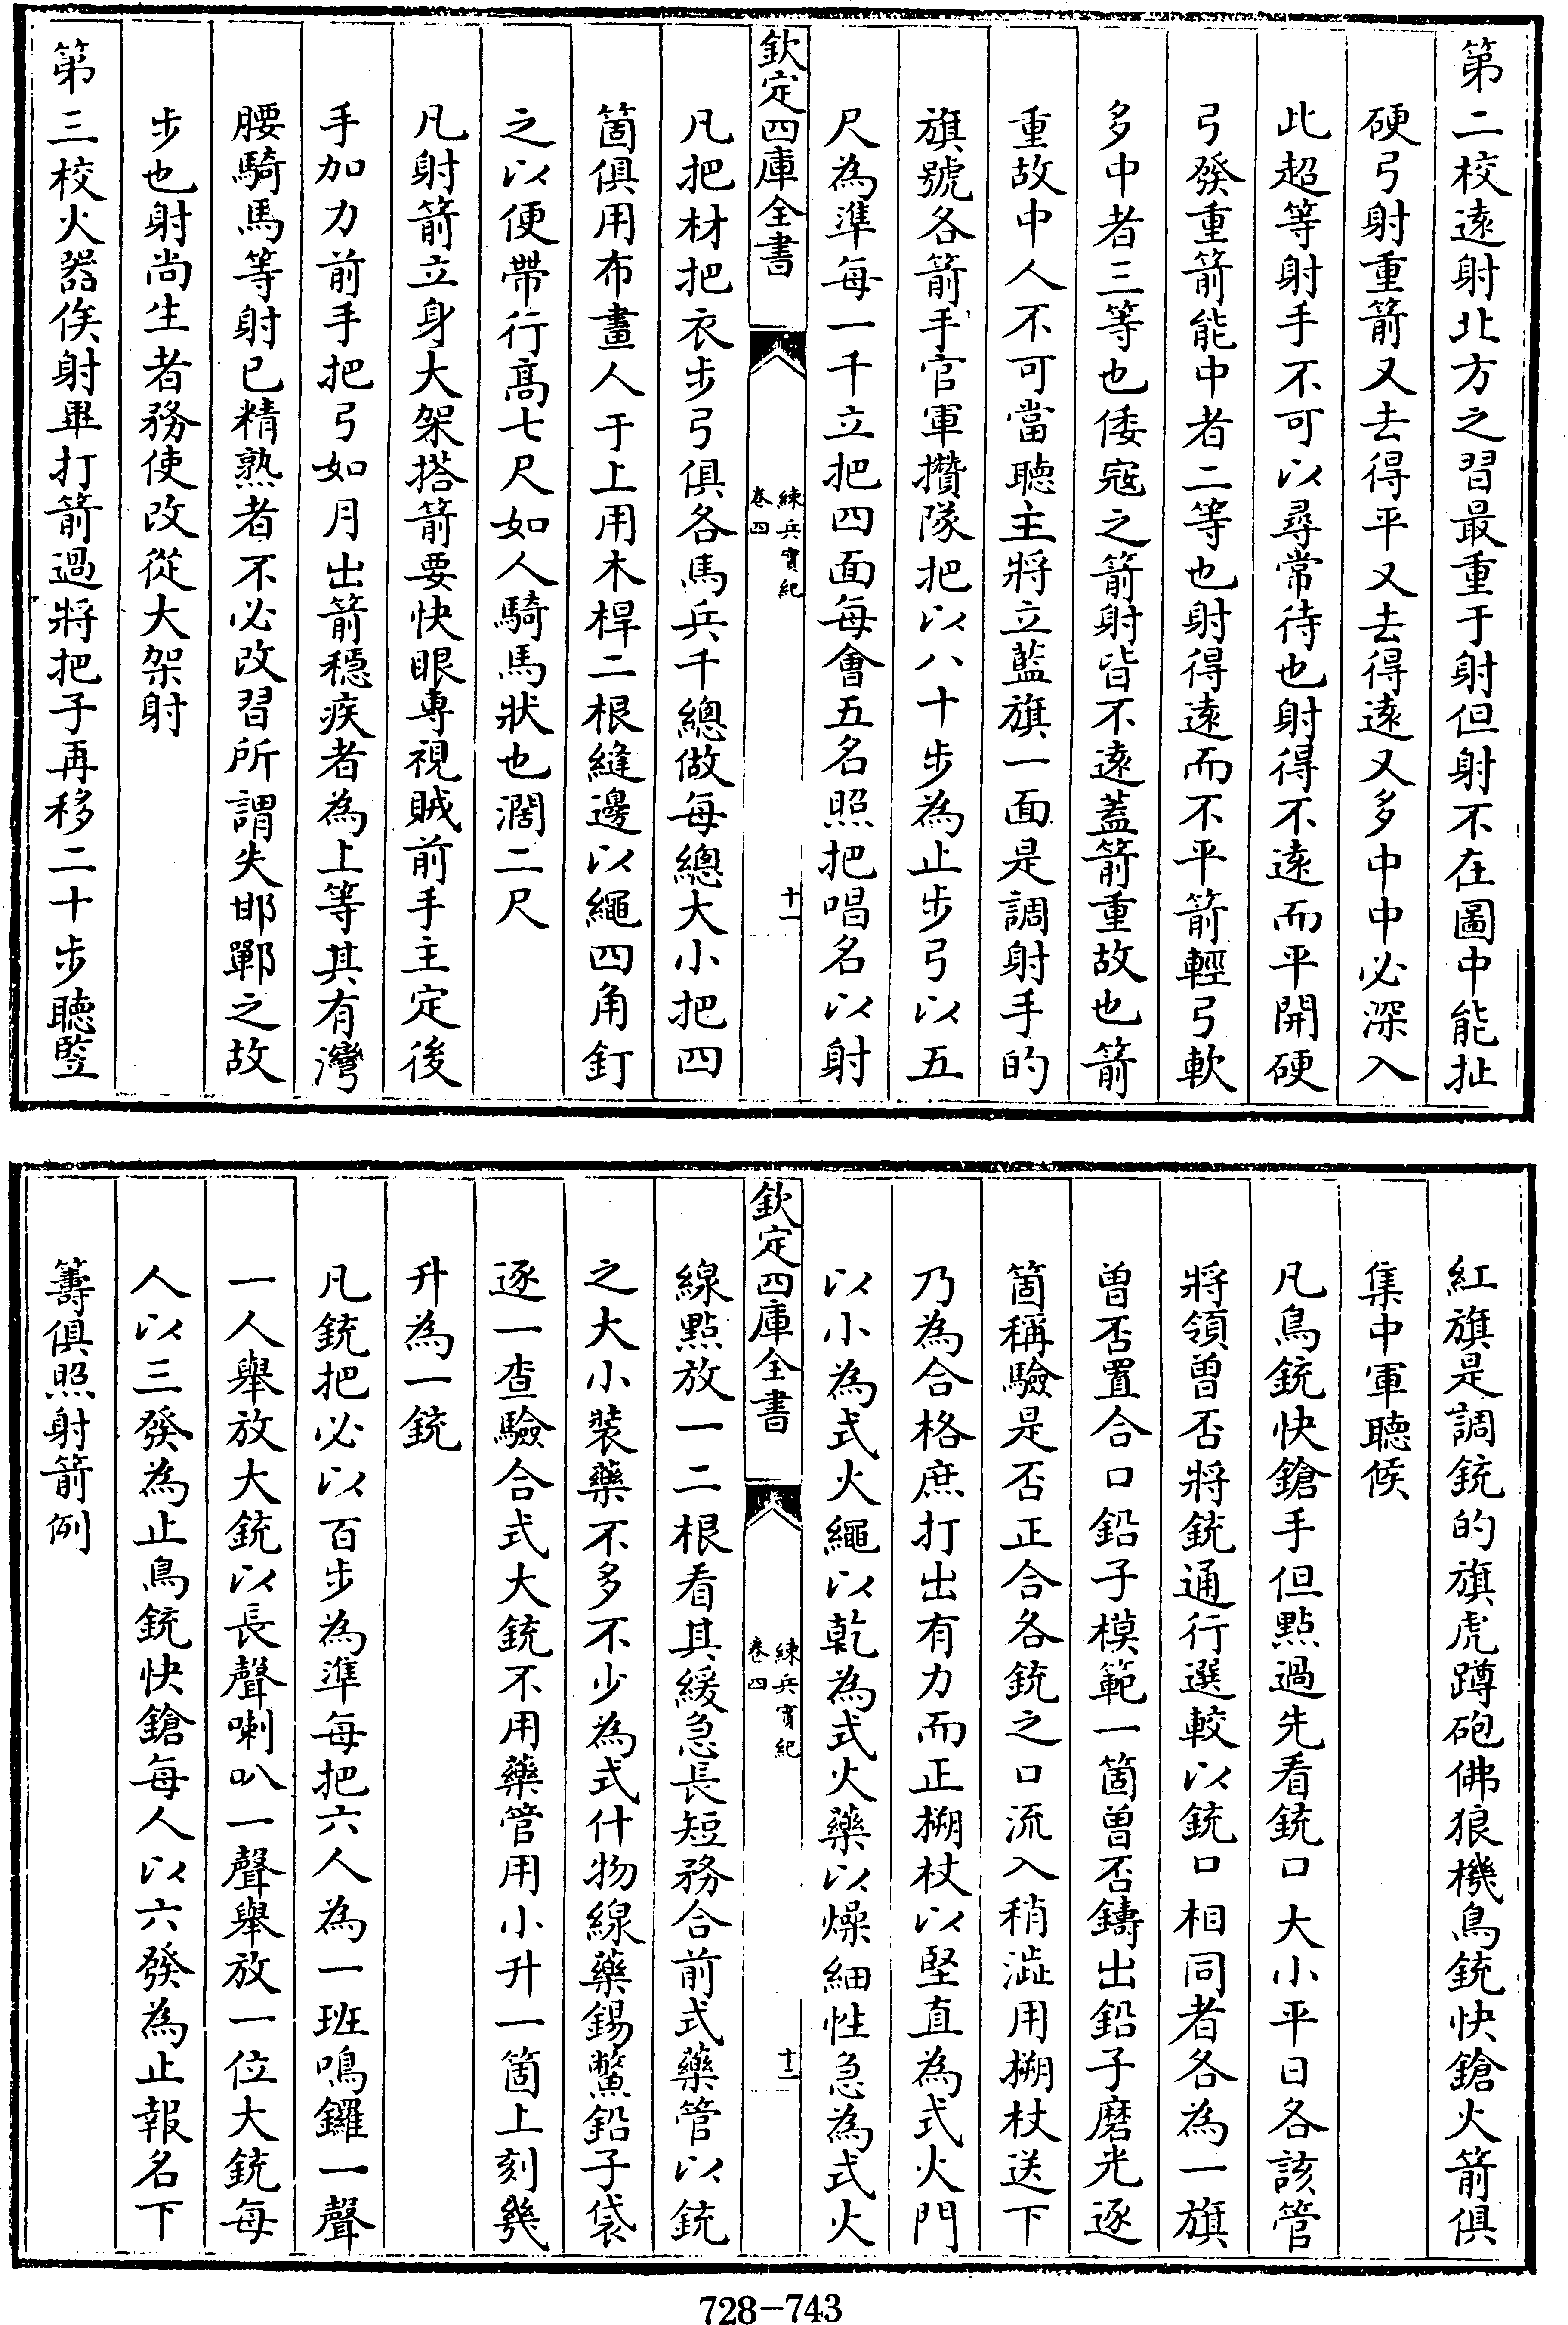 第二校遠射北方之習最重于射但射不在圖中能扯
硬弓射重箭又去得平又去得遠又多中中必深入
此超等射手不可以尋常待也射得不遠而平開硬
弓發重箭能中者二等也射得遠而不平箭輕弓軟
多中者三等也倭寇之箭射皆不遠蓋箭重故也箭
重故中人不可當聽主將立藍旗一面是調射手的
旗號各箭手官軍攢隊把以八十步為止步弓以五
尺為準每一千立把四面每會五名照把唱名以射
欽定四庫全書
練兵實紀
卷四
十一
凡把材把衣步弓俱各馬兵千總做每總大小把四
箇俱用布畫人于上用木桿二根縫邊以繩四角釘
之以便帶行高七尺如人騎馬狀也濶二尺
凡射箭立身大架搭箭要快眼專視賊前手主定後
手加力前手把弓如月出箭穩疾者為上等其有灣
腰騎馬等射已精熟者不必改習所謂失邯鄲之故
步也射尚生者務使改從大架射
第三校火器俟射畢打箭過將把子再移二十步聽豎
紅旗是調銃的旗虎蹲砲佛狼機鳥銃快鎗火箭俱
集中軍聽候
凡鳥銃快鎗手但點過先看銃口大小平日各該管
將領曾否將銃通行選較以銃口相同者各為一旗
曾否置合口鉛子模範一箇曾否鑄出鉛子磨光逐
箇稱驗是否正合各銃之口流入稍澁用搠杖送下
乃為合格庶打出有力而正搠杖以堅直為式火門
以小為式火繩以乾為式火藥以燥細性急為式火
欽定四庫全書
練兵實紀
卷四
十二
線點放一二根看其緩急長短務合前式藥管以銃
之大小裝藥不多不少為式什物線藥錫鱉鉛子袋
逐一查驗合式大銃不用藥管用小升一箇上刻幾
升為一銃
凡銃把必以百步為準每把六人為一班鳴鑼一聲
一人舉放大銃以長聲喇叭一聲舉放一位大銃每
人以三發為止鳥銃快鎗每人以六發為止報名下
籌俱照射箭例
728-743